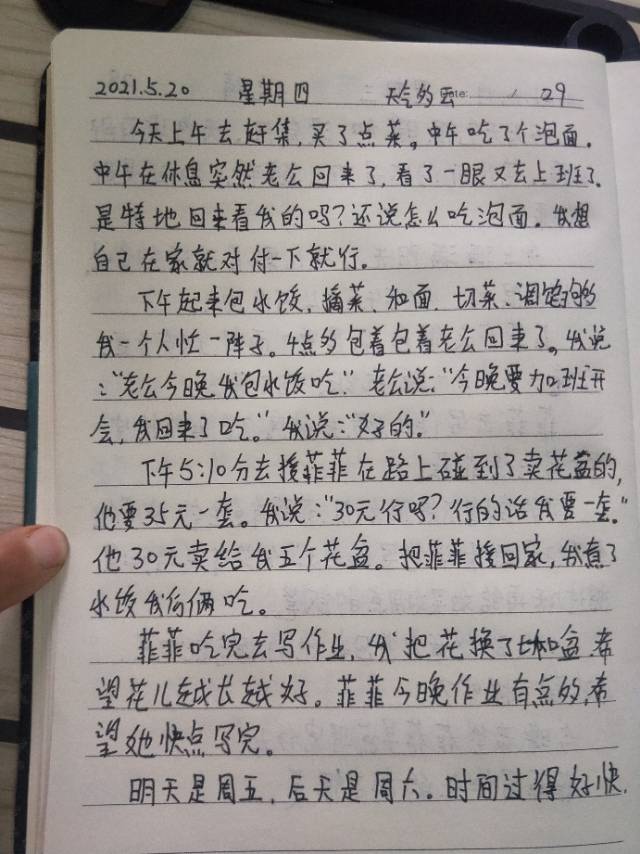 2021.5.20 星期四 天气多云 Date: / 29
今天上午去赶集,买了点菜。中午吃了个泡面。
中午在休息突然老公回来了,看了一眼又去上班了。
是特地回来看我的吗?还说怎么吃泡面。我想
自己在家就对付一下就行。
下午起来包水饺,摘菜、和面、切菜、调馅的
我一个人忙一阵子。4点多包着包着老公回来了。我说
:“老公今晚我包水饺吃.”老公说:“今晚要加班开
会,我回来了吃。”我说:“好的.”
下午5:10分去接菲菲在路上碰到了卖花盆的,
他要35元一套。我说:“30元行吗?行的话我要一套.”
他30元卖给我五个花盆。把菲菲接回家,我煮了
水饺我们俩吃。
菲菲吃完去写作业,我把花换了盆.希
望花儿越长越好。菲菲今晚作业有点多,希
望她快点写完。
明天是周五,后天是周六。时间过得好快.